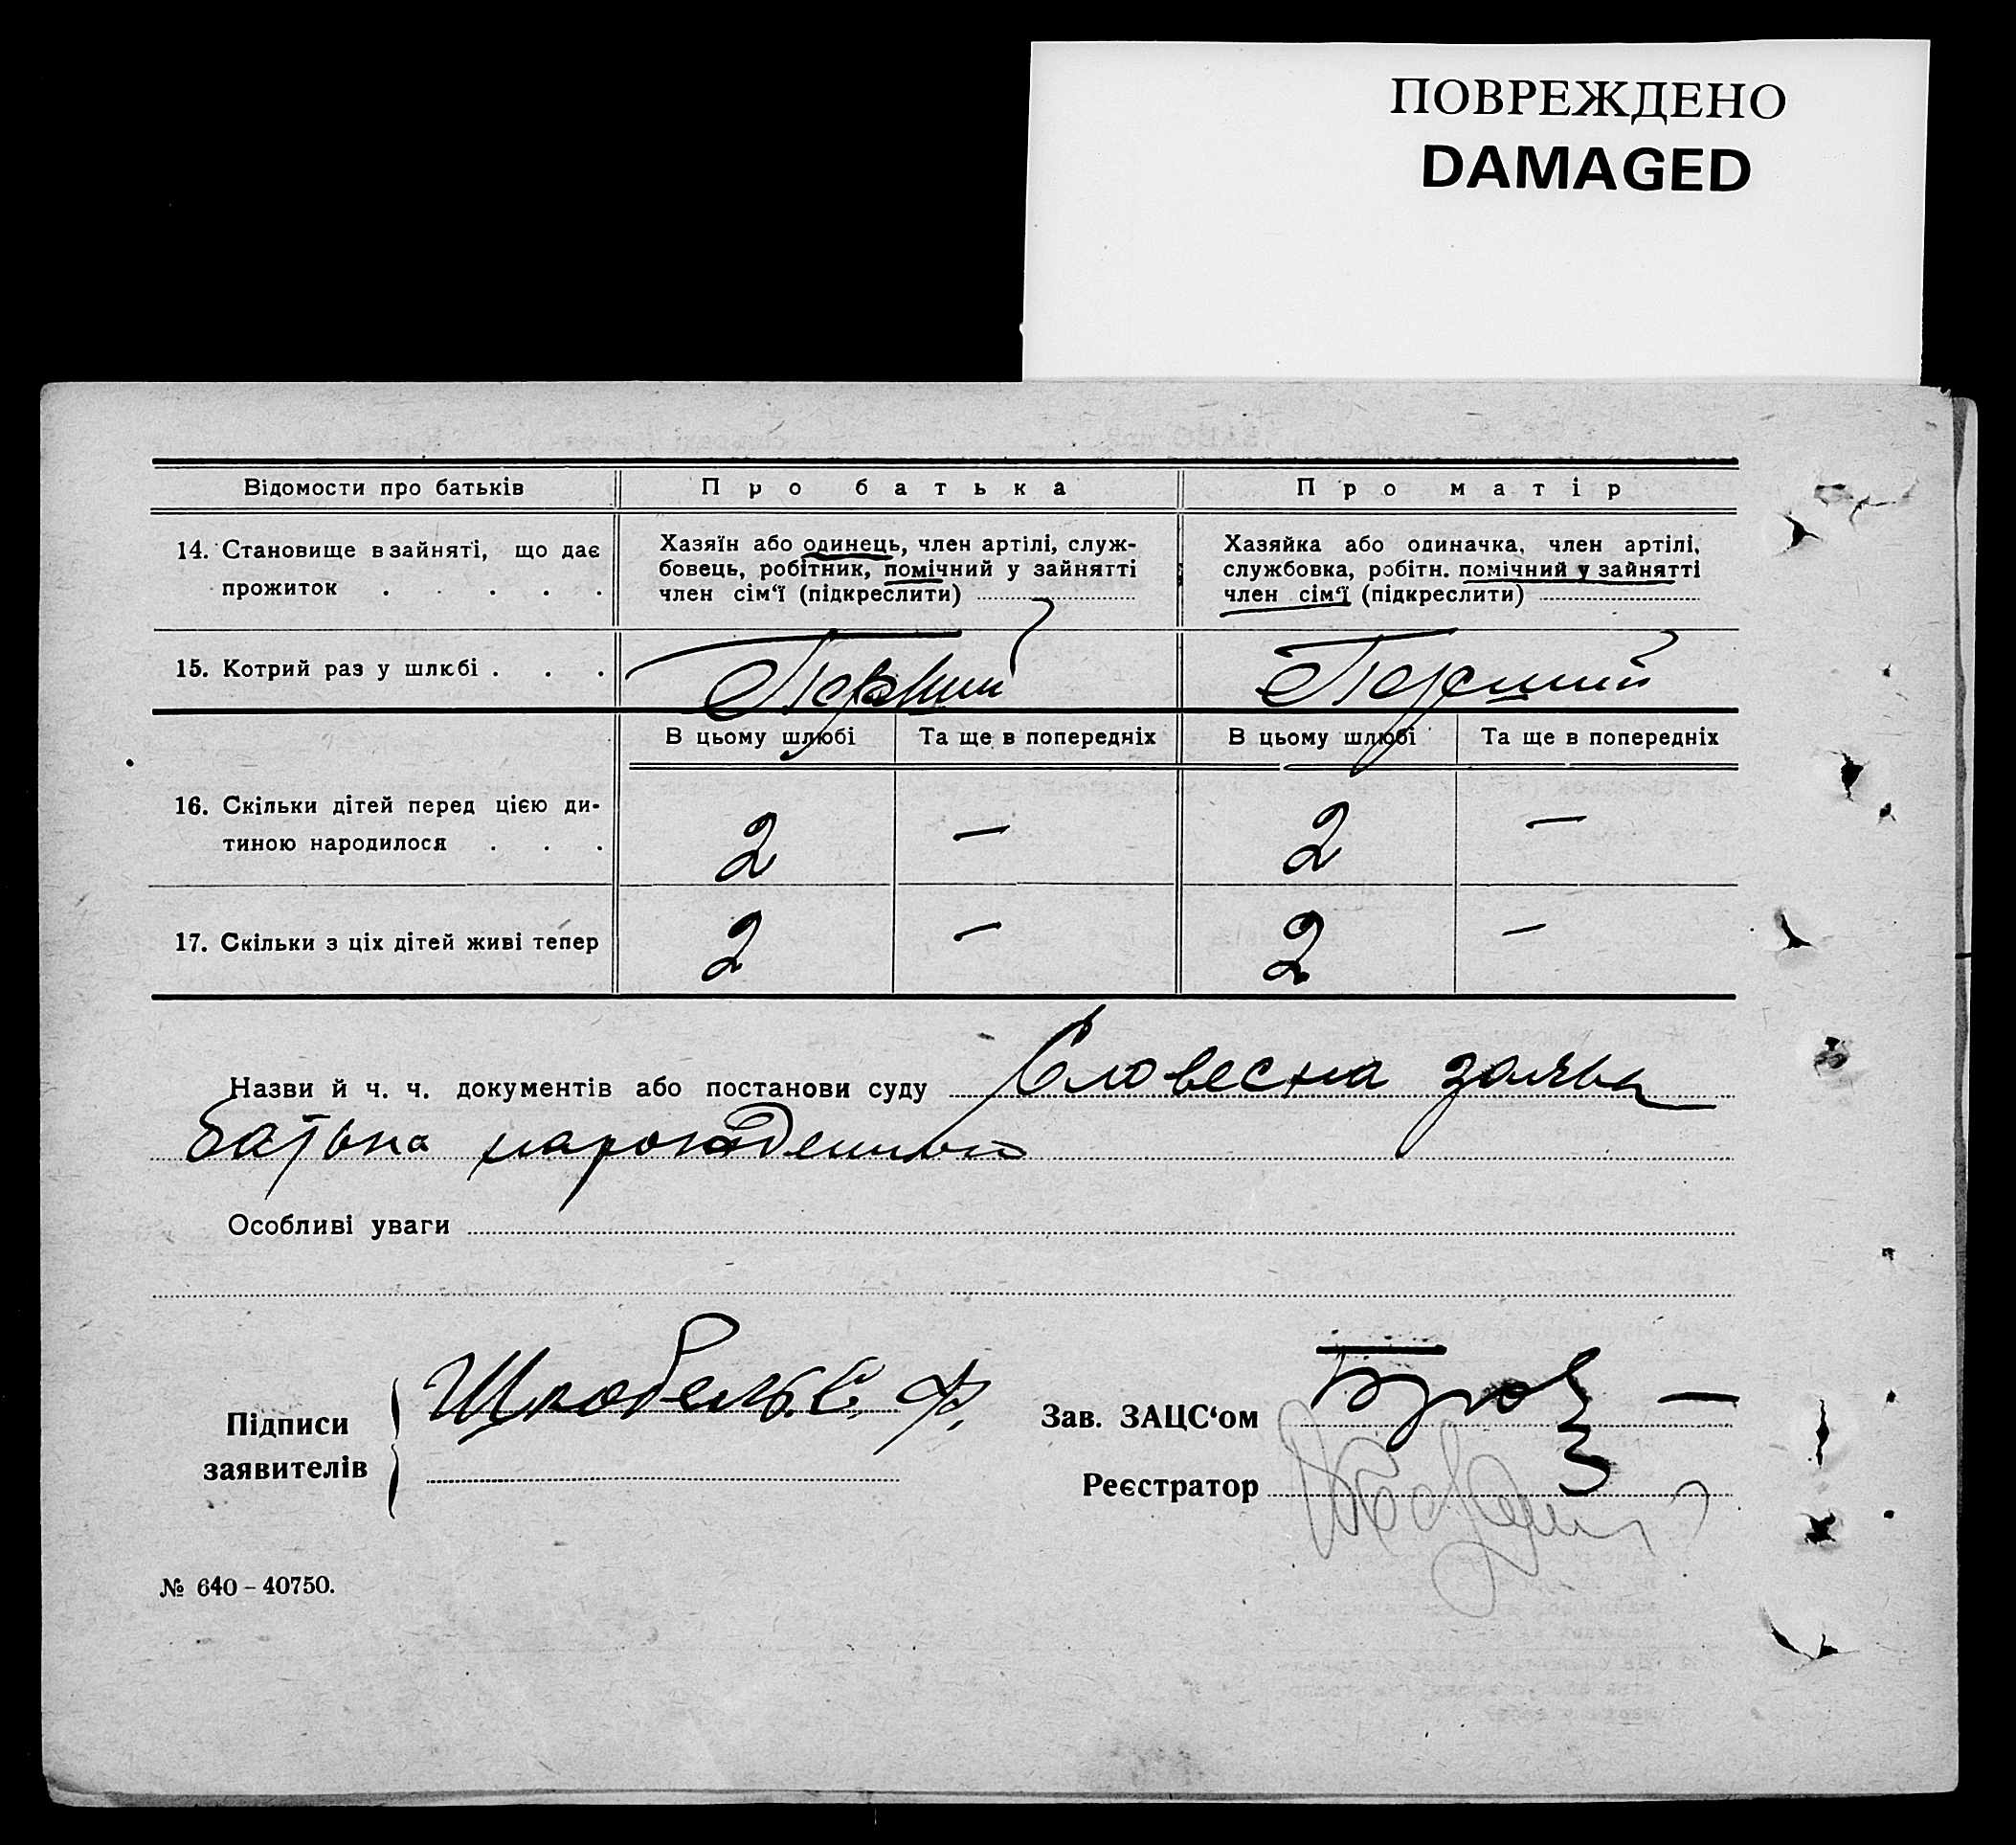 ПОВРЕЖДЕНО
DAMAGED
Відомости про батьків
Про батька
Про матір
14. Становище в зайняті, що дає
прожиток . . . . .
Хазяїн або одинець, член артілі, служ-
бовець, робітник, помічний у зайнятті
член сім‘ї (підкреслити)
Хазяйка або одиначка, член артілі,
службовка, робітн. помічний у зайнятті
член сім‘ї (підкреслити)
15. Котрий раз у шлюбі . . .
Перший
Перший
В цьому шлюбі
Та ще в попередніх
В цьому шлюбі
Та ще в попередніх
16. Скільки дітей перед цією ди-
тиною народилося . . .
2
—
2
—
17. Скільки з ціх дітей живі тепер
2
—
2
—
Назви й ч. ч. документів або постанови суду Словесна заява
батька
Особливі уваги
Підписи
заявителів
Зав. ЗАЦС‘ом
Реєстратор
№ 640 – 40750.